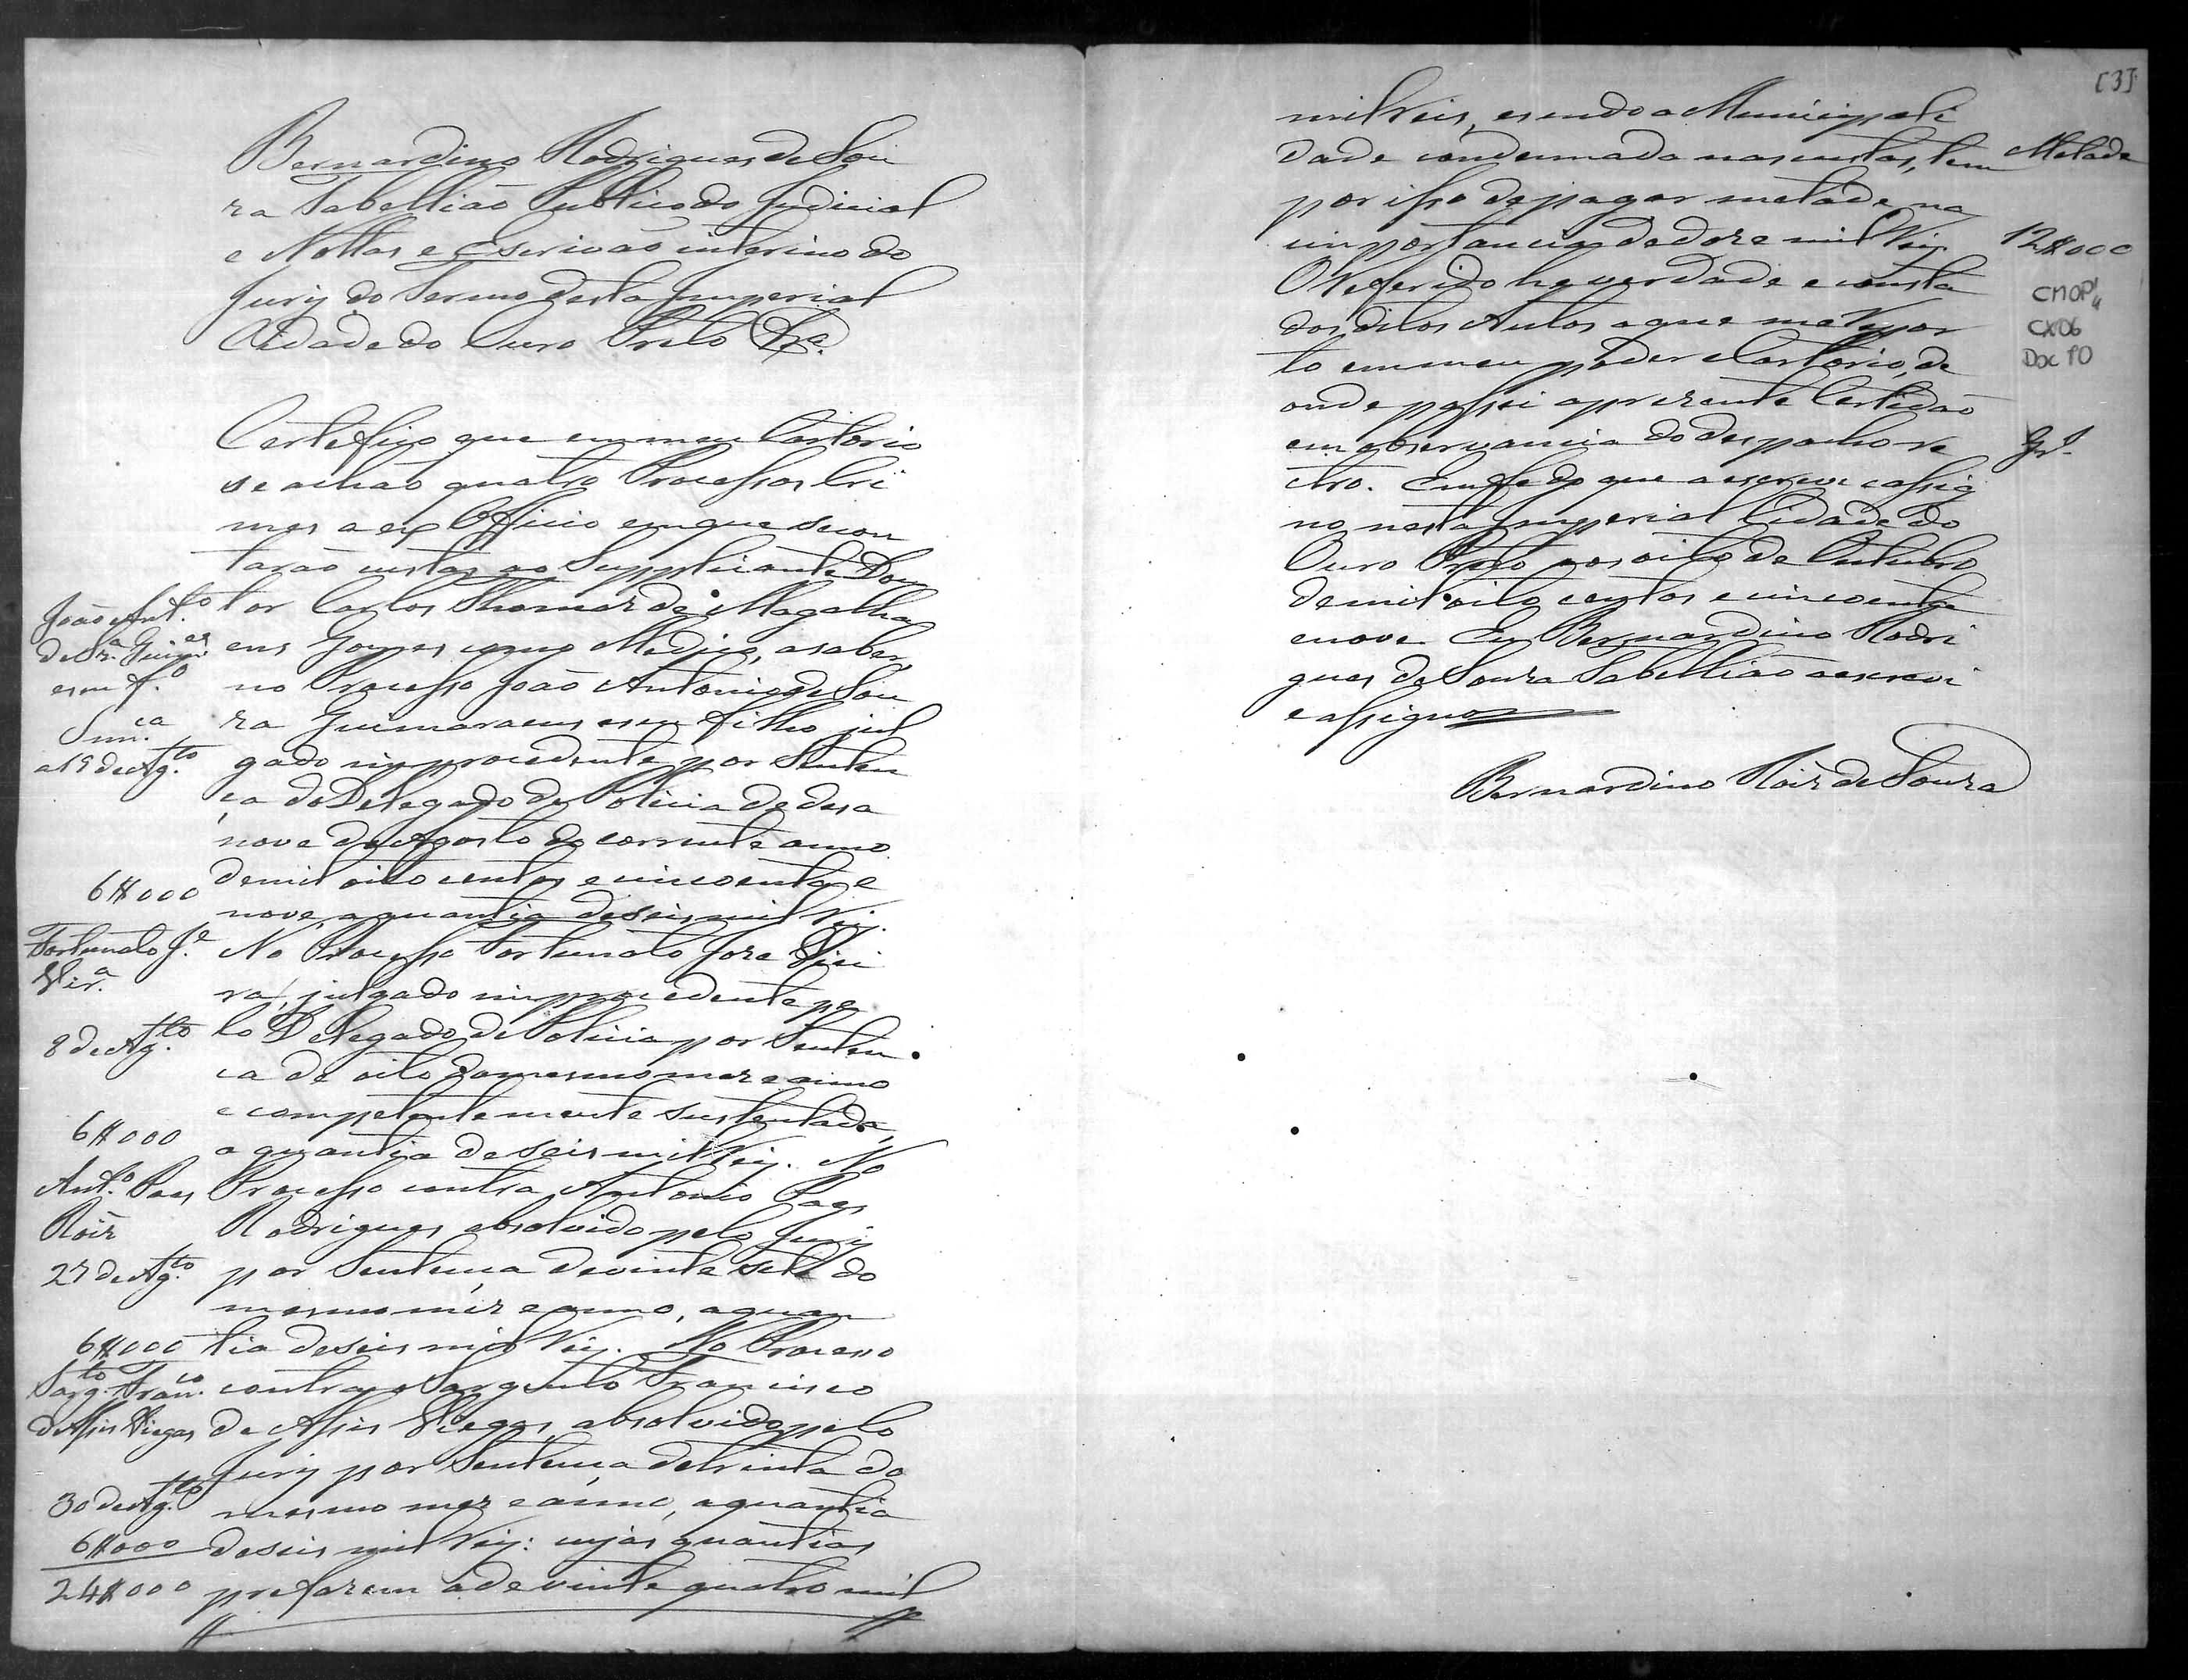 Bernardino Rodrigues de Sou
za Tabellião Publico do Judicial
e Nottas e Escrivão interino do
Jury do Termo desta Imperial
Cidade do Ouro Preto &a.
Certefico que em meu Cartorio
se achão quatro Processos Cri
mes a ex Officio em que se con
tarão custas ao Supplicante Dou
tor Carlos Thomaz de Magalha
ens Gomes como Medico, a saber,
no Processo João Antonio de Sou
za Guimaraens e seu filho jul
gado improcedente por Senten
ça do Delegado de Policia de deza
nove de Agosto do corrente anno
de mil oito centos e cincoenta e
nove, a quantia de seis mil Reis.
No Processo Fortunato Joze Viei
ra, julgado improcedente pe
lo Delegado de Policia por Senten
ca de oito do mesmo mez e anno
e competentemente sustentada,
a quantia de seis mil Reis. No
Processo contra Antonio Paes
Rodrigues absolvido pelo Jury
por Sentença de vinte sete do
mesmo mez e anno, a quan
tia de seis mil Reis. No Processo
contra o Sargento Francisco
de Assis Viegas, absolvido pelo
Jury por Sentença de trinta do
mesmo mez e anno, a quantia
de seis mil Reis: cujas quantias
prefazem a de vinte quatro mil
João Ant.o
de Sz.a Guim.es
e seu f.o
Snn.ca
a 19 de Ag.to
6$000
Fortunato J.e
Vir.a
8 de Ag.to
6$000
Ant.o Paes
Roiz
27 de Ag.to
6$000
Sarg.to Fran.co
de Assis Viegas
30 de Ag.to
6$000
24$000
[3]
mil Reis, e sendo a Municipali
dade condemnada nas custas, tem
por isso de pagar metade na
importancia de doze mil Reis.
O Referido he verdade e consta
dos ditos Autos a que me Repor
to em meu poder e Cartorio, de
onde passei a prezente Certidão
em observancia do despacho re
tro. Em fé do que a escrevi e assig
no nesta Imperial Cidade do
Ouro Preto aos oito de Outubro
de mil oito centos e cincoenta
e nove. Eu Bernardino Rodri
gues de Souza Tabellião a escrevi
e assigno
Bernardino Roiz de Souza
Metade
12$000
CMOP
CX06
Doc 10